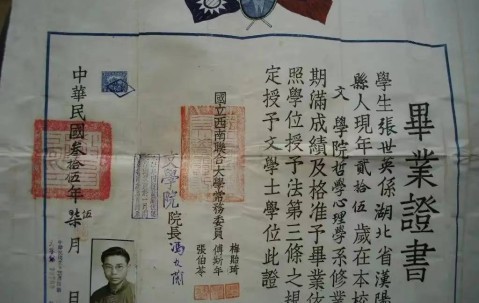 畢業證書
學生張世英係湖北省漢陽
縣人現年貳拾伍歲在本校
文學院哲學心理學系修業
期滿成績及格准予畢業依
照學位授予法第三條之規
定授予文學士學位此證
國立西南聯合大學常務委員
梅貽琦
傅斯年
張伯苓
文學院院長馮文蘭
中華民國叁拾伍年柒月 日